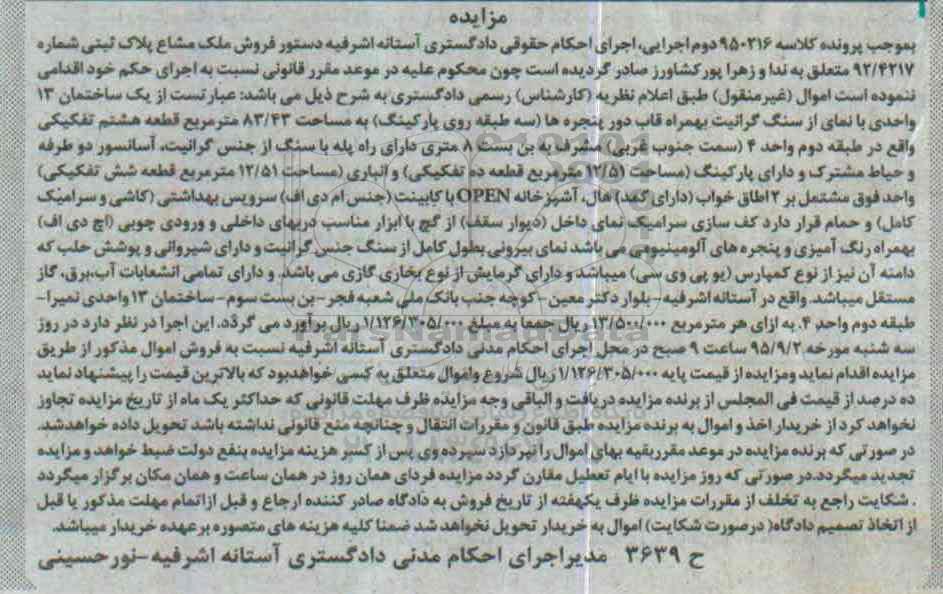 مزایده
بموجب پرونده کلاسه ۹۵۰۲۱۶ دوم اجرایی، اجرای احکام حقوقی دادگستری آستانه اشرفیه دستور فروش ملک مشاع پلاک ثبتی شماره
۹۲/۴۲۱۷ متعلق به ندا و زهرا پور کشاورز صادر گردیده است چون محکوم علیه در موعد مقرر قانونی نسبت به اجرای حکم خود اقدامی
ننموده است اموال (غیرمنقول) طبق اعلام نظریه (کارشناس) رسمی دادگستری به شرح ذیل می باشد: عبارتست از یک ساختمان ۱۳
واحدی با نمای از سنگ گرانیت بهمراه قاب دور پنجره ها (سه طبقه روی پارکینگ) به مساحت ۸۳/۴۳ مترمربع قطعه هشتم تفکیکی
واقع در طبقه دوم واحد ۴ (سمت جنوب غربی) مشرف به بن بست ۸ متری دارای راه پله با سنگ از جنس گرانیت، آسانسور دو طرفه
و حیاط مشترک و دارای پارکینگ (مساحت ۱۲/۵۱ مترمربع قطعه ده تفکیکی) و انباری (مساحت ۱۲/۵۱ مترمربع قطعه شش تفکیکی)
واحد فوق مشتمل بر ۲ اطاق خواب (دارای کمد) هال، آشپزخانه OPEN با کابینت (جنس ام دی اف) سرویس بهداشتی (کاشی و سرامیک
کامل) و حمام قرار دارد کف سازی سرامیک نمای داخل (دیوار سقف) از گچ با ابزار مناسب دربهای داخلی و ورودی چوبی (اچ دی اف)
بهمراه رنگ آمیزی و پنجره های آلومینیومی می باشد نمای بیرونی بطول کامل از سنگ جنس گرانیت و دارای شیروانی و پوشش حلب که
دامنه آن نیز از نوع کمپارس (یو پی وی سی) میباشد و دارای گرمایش از نوع بخاری گازی می باشد. و دارای تمامی انشعابات آب، برق، گاز
مستقل میباشد. واقع در آستانه اشرفیه-بلوار دکتر معین-کوچه جنب بانک ملی شعبه فجر-بن بست سوم-ساختمان ۱۳ واحدی نمیرا-
طبقه دوم واحد ۴. به ازای هر مترمربع ۱۳/۵۰۰/۰۰۰ ریال جمعا به مبلغ ۱/۱۲۶/۳۰۵/۰۰۰ ریال برآورد می گردد. این اجرا در نظر دارد در روز
سه شنبه مورخه ۹۵/۹/۲ ساعت ۹ صبح در محل اجرای احکام مدنی دادگستری آستانه اشرفیه نسبت به فروش اموال مذکور از طریق
مزایده اقدام نماید ومزایده از قیمت پایه ۱/۱۲۶/۳۰۵/۰۰۰ ریال شروع واموال متعلق به کسی خواهدبود که بالاترین قیمت را پیشنهاد نماید
ده درصد از قیمت فی المجلس از برنده مزایده دریافت و الباقی وجه مزایده ظرف مهلت قانونی که حداکثر یک ماه از تاریخ مزایده تجاوز
نخواهد کرد از خریدار اخذ و اموال به برنده مزایده طبق قانون و مقررات انتقال و چنانچه منع قانونی نداشته باشد تحویل داده خواهدشد.
در صورتی که برنده مزایده در موعد مقرربقیه بهای اموال را نپردازد سپرده وی پس از کسر هزینه مزایده بنفع دولت ضبط خواهد و مزایده
تجدید میگردد.در صورتی که روز مزایده با ایام تعطیل مقارن گردد مزایده فردای همان روز در همان ساعت و همان مکان برگزار میگردد
. شکایت راجع به تخلف از مقررات مزایده ظرف یکهفته از تاریخ فروش به دادگاه صادر کننده ارجاع و قبل ازاتمام مهلت مذکور یا قبل
از اتخاذ تصمیم دادگاه( درصورت شکایت) اموال به خریدار تحویل نخواهد شد ضمنا کلیه هزینه های متصوره بر عهده خریدار میباشد.
ح ۳۶۳۹ مدیراجرای احکام مدنی دادگستری آستانه اشرفیه-نورحسینی
ParsNamadData